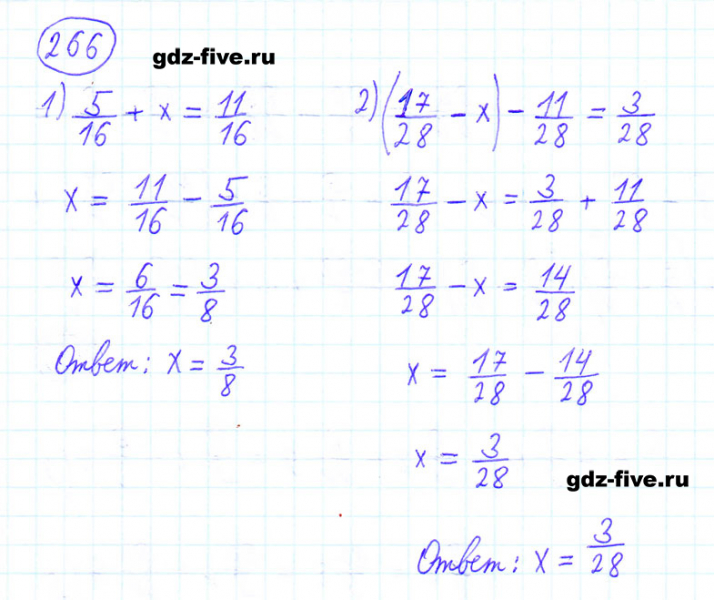 266
gdz-five.ru
1) 5/16 + x = 11/16
x = 11/16 - 5/16
x = 6/16 = 3/8
Ответ: x = 3/8
2) (17/28 - x) - 11/28 = 3/28
17/28 - x = 3/28 + 11/28
17/28 - x = 14/28
x = 17/28 - 14/28
x = 3/28
gdz-five.ru
Ответ: x = 3/28